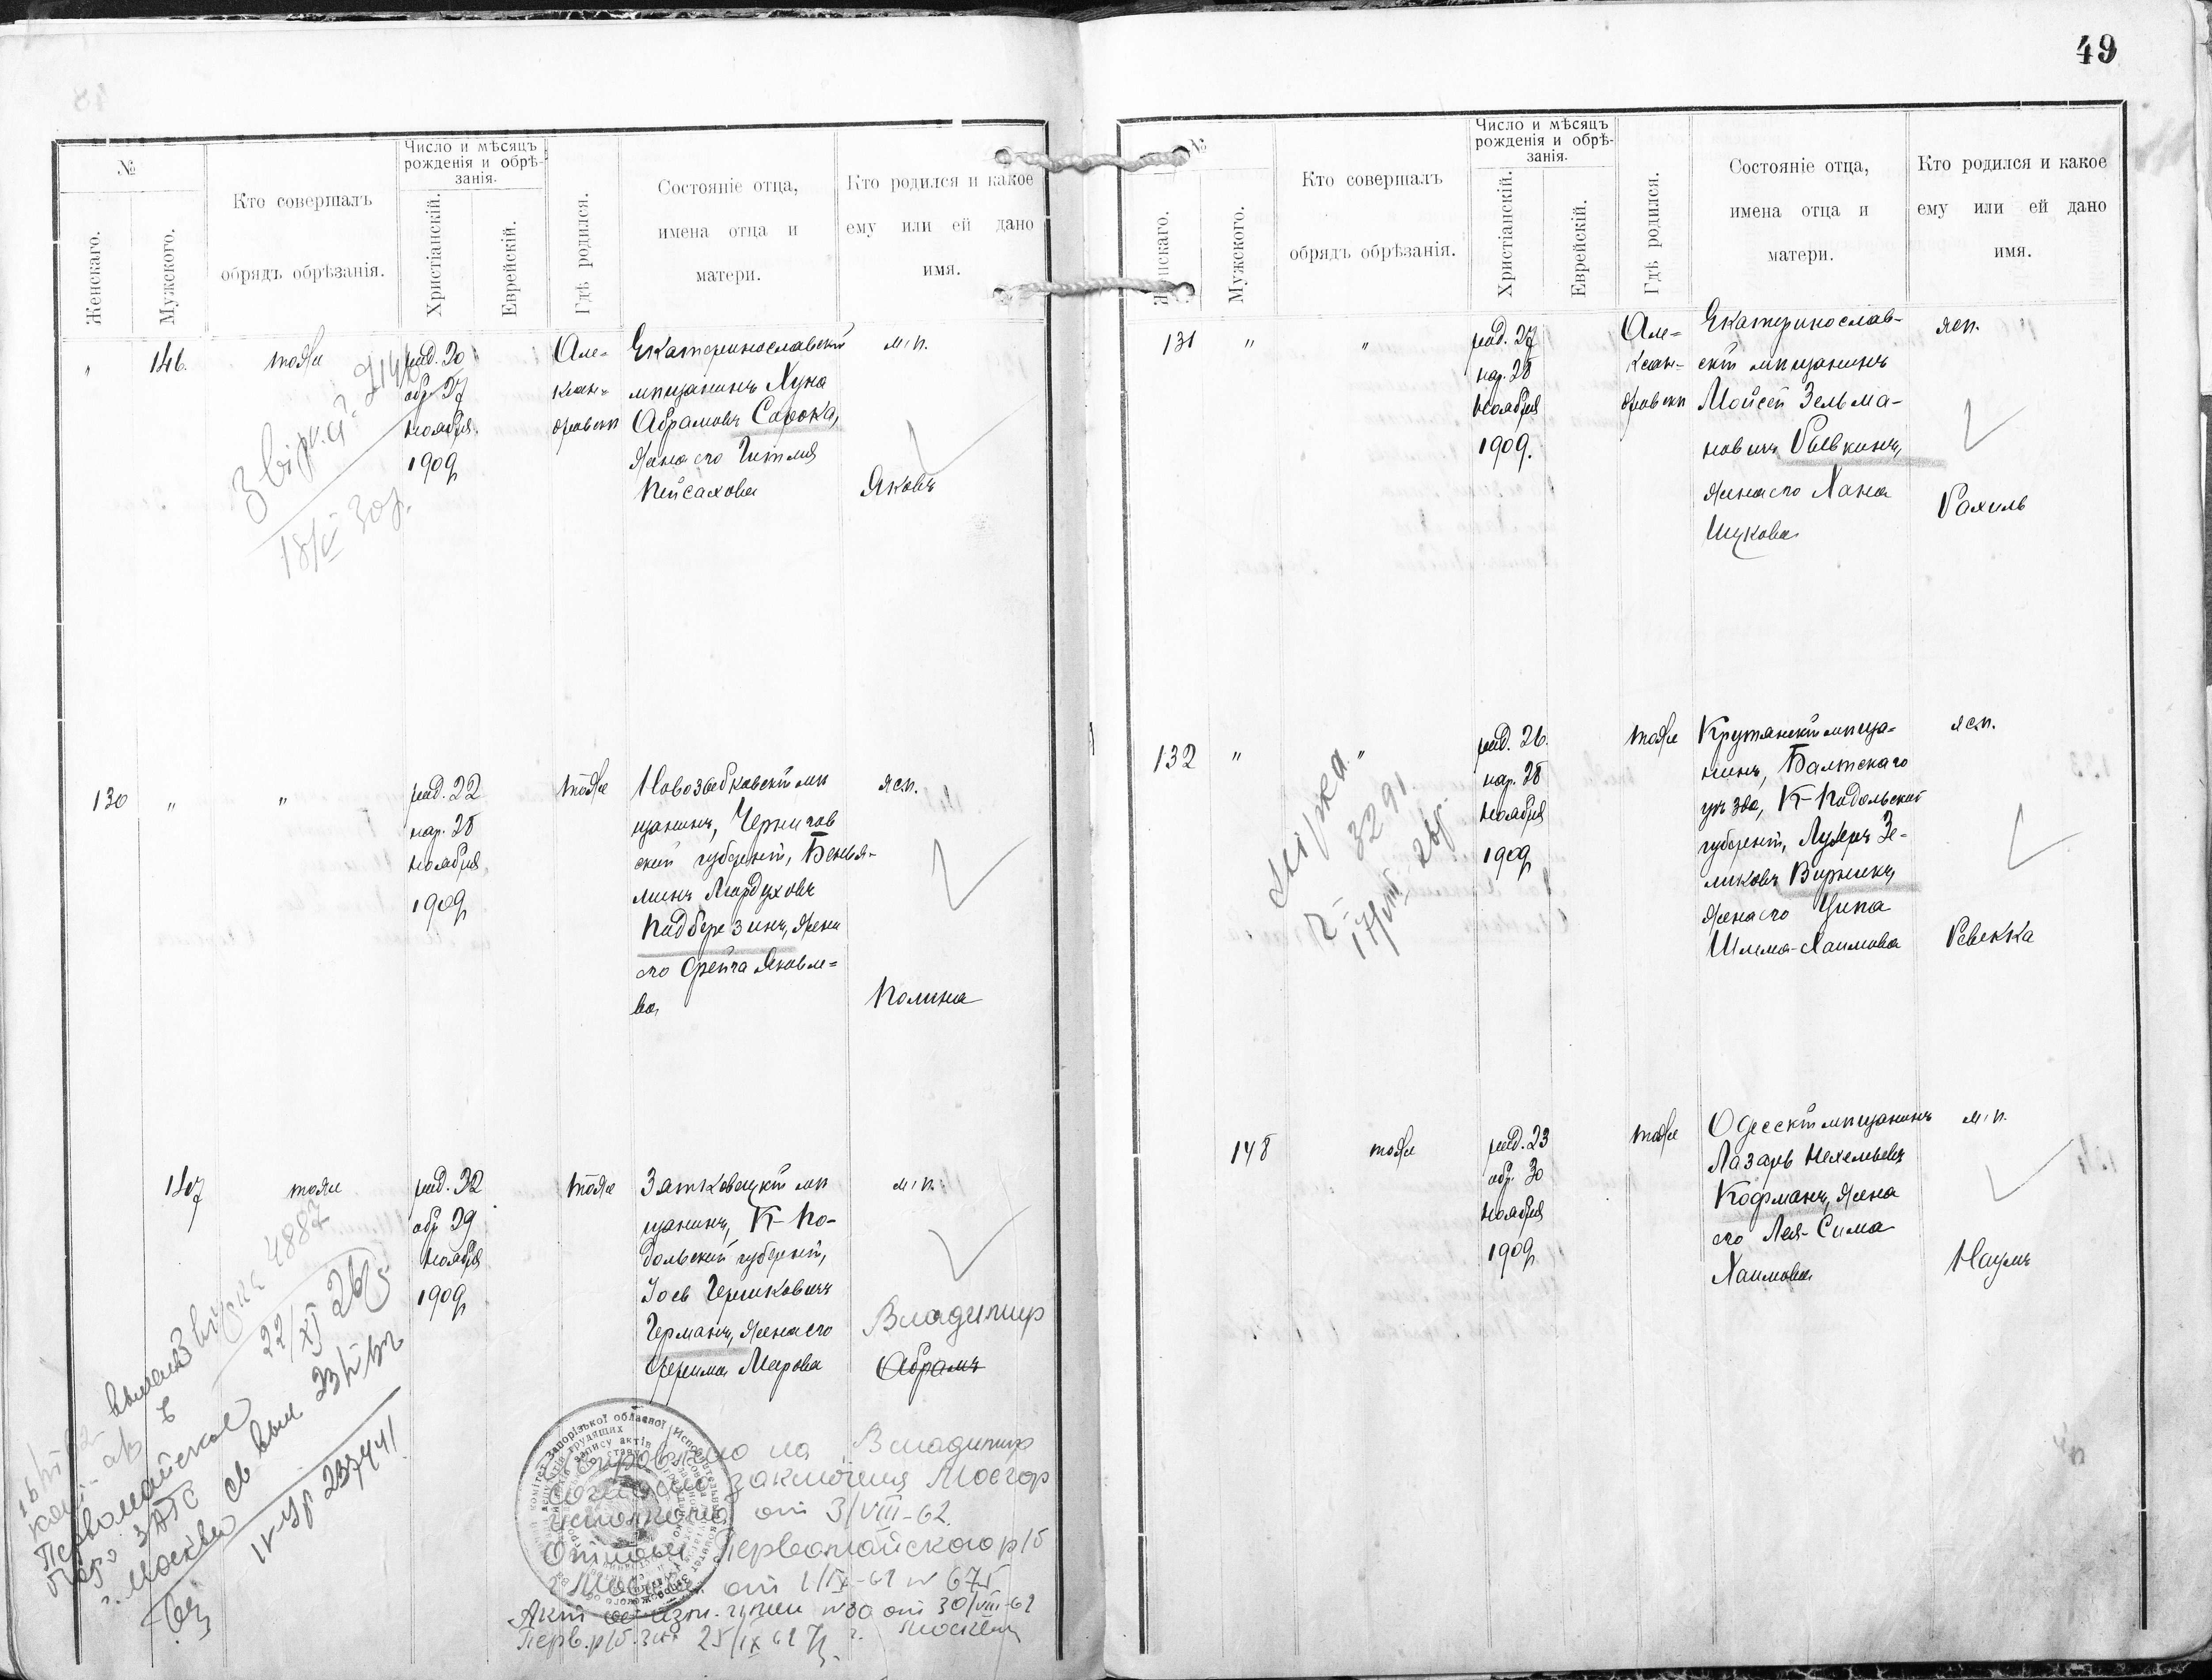 49
№
Женскаго.
Мужского.
Кто совершалъ
обрядъ обрѣзанія.
Число и мѣсяцъ
рожденія и обрѣ-
занія.
Христіанскій.
Еврейскій.
Гдѣ родился.
Состояніе отца,
имена отца и
матери.
Кто родился и какое
ему или ей дано
имя.
" 146. тоже
род. 20
обр. 27
Ноября
1909
Але=
ксан=
дровскъ
Екатеринославскій
мѣщанинъ Хуна
Абрамовъ Сорока,
жена его Гитля
Пейсахова
м. п.
Яковъ
18/V 30 р.
130 " "
род. 22
нар. 28
Ноября
1909
тоже
Новозыбковскій мѣ
щанинъ, Чернигов
ской губерніи, Бенья-
минъ Мордуховъ
Подберезинъ, жена
его Фрейга Яковле=
ва
жен.
Полина
147 тоже
род. 22
обр. 29
Ноября
1909
тоже
Затковецкій мѣ
щанинъ, К-По-
дольской губерніи,
Іось Гершковичъ
Германъ, жена его
Фрима Мерова
м. п.
Владимир
Абрамъ
4887
22/XI 26 р
Первомайское
бюро ЗАГС
г. Москвы
на Владимир
согласно заключения Мосгор
исполкома от 3/VIII-62.
Первомайского р/б
г. Москвы от 1/IX-62 № 675
Акт об изм. № 80 от 30/VIII-62
Перв. р/б. ЗАГС г. Москвы
25/IX 62
№
Женскаго.
Мужского.
Кто совершалъ
обрядъ обрѣзанія.
Число и мѣсяцъ
рожденія и обрѣ-
занія.
Христіанскій.
Еврейскій.
Гдѣ родился.
Состояніе отца,
имена отца и
матери.
Кто родился и какое
ему или ей дано
имя.
131 " "
род. 27
нар. 28
Ноября
1909.
Але=
ксан-
дровскъ
Екатеринослав-
скій мѣщанинъ
Мойсей Зельма-
новичъ Рывкинъ,
жена его Хана
Ицкова
жен.
Рахиль
132 " "
род. 26.
нар. 28
Ноября
1909
тоже
Крутянскій мѣща-
нинъ, Балтскаго
уѣзда, К-Подольской
губерніи, Лузеръ Зе-
ликовъ Вирникъ,
жена его Ципа
Шлема-Хаимова
жен.
Ревекка
3291
17/VIII 26 р.
148 тоже
род. 23
обр. 30
Ноября
1909
тоже
Одесскій мѣщанинъ
Лазарь Нехемьевъ
Кофманъ, жена
его Лея-Сима
Хаимова
м. п.
Наумъ